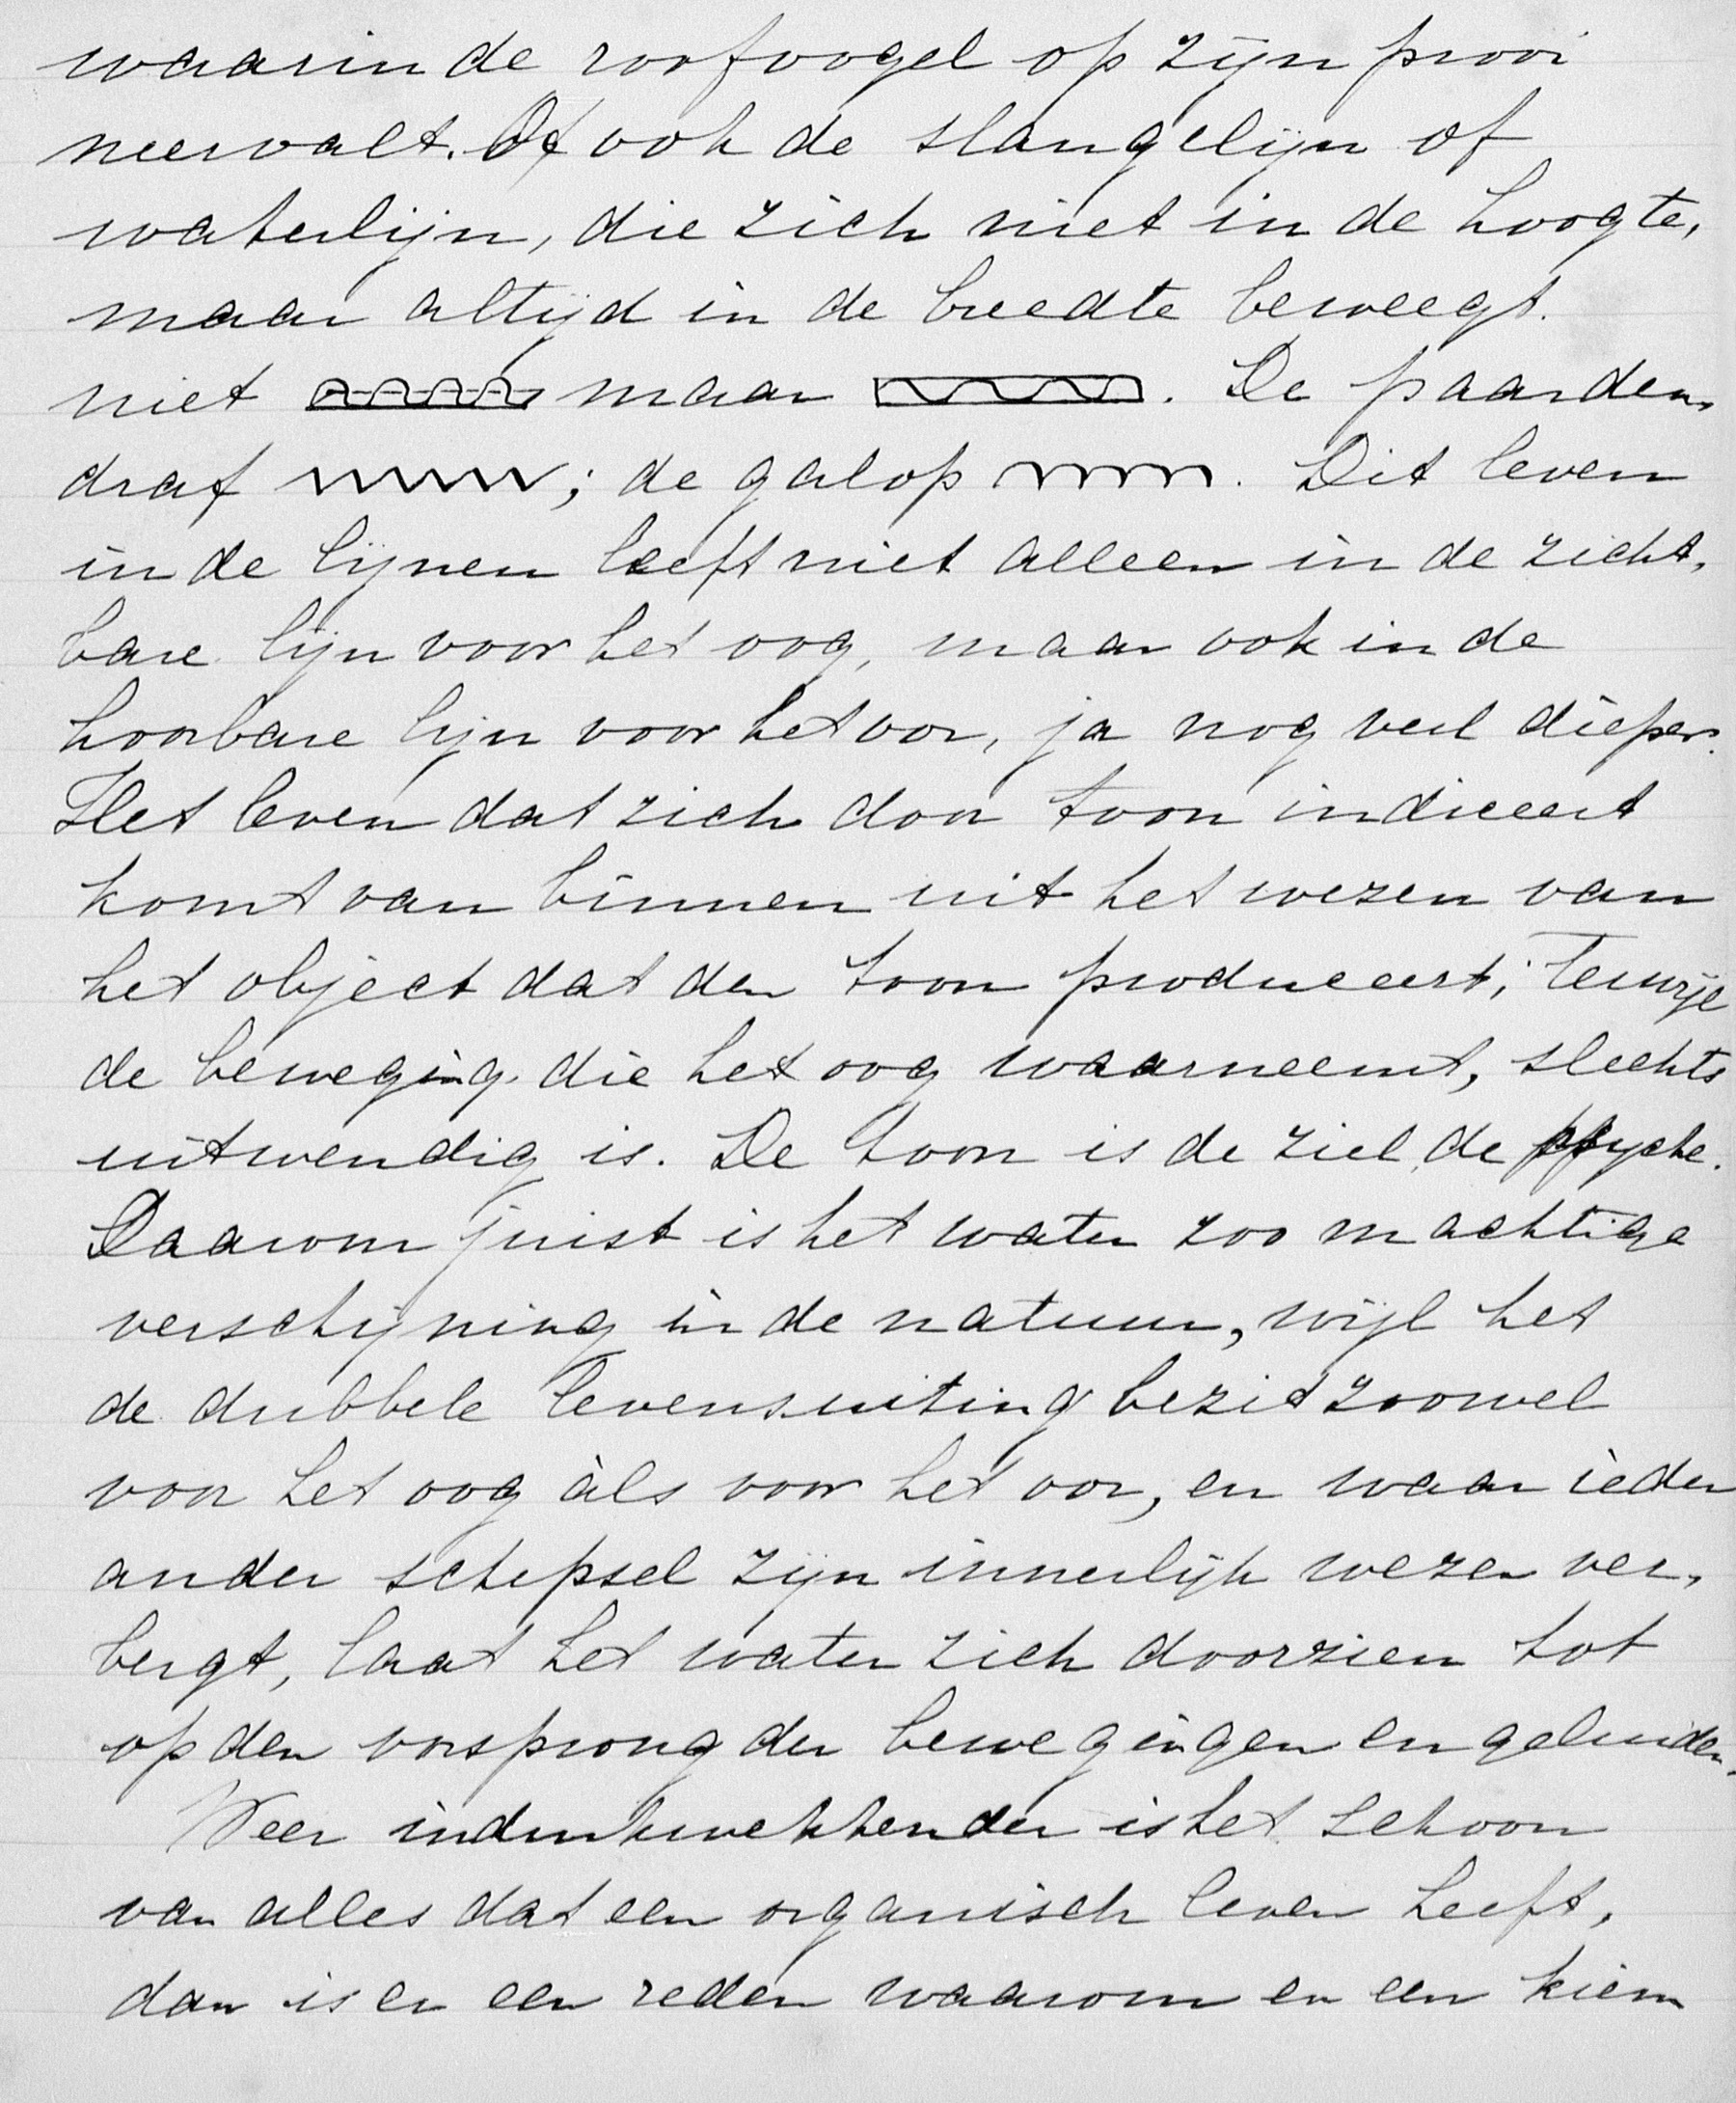 waarin de roofvogel op zijn prooi
neervalt. Of ook de slangelijn of
waterlijn, die zich niet in de hoogte,
maar altijd in de breedte beweegt.
niet maar . De paarden,
draf ; de galop . Dit leven
in de lijnen leeft niet alleen in de zicht,
bare lijn voor het oog, maar ook in de
hoorbare lijn voor het oor, ja nog veel dieper.
Het leven dat zich door toon indiceert
komt van binnen uit het wezen van
het object dat den toon produceert; terwijl
de beweging die het oog waarneemt, slechts
uitwendig is. De toon is de ziel, de psyche.
Daarom juist is het water zoo machtige
verschijning in de natuur, wijl het
de dubbele levensuiting bezit zoowel
voor het oog àls voor het oor, en waar ieder
ander schepsel zijn innerlijk wezen ver,
bergt, laat het water zich doorzien tot
op den oorsprong der bewegingen en geluiden.
Weer indrukwekkender is het schoon
van alles dat een organisch leven heeft,
dan is er een reden waarom er een kiem